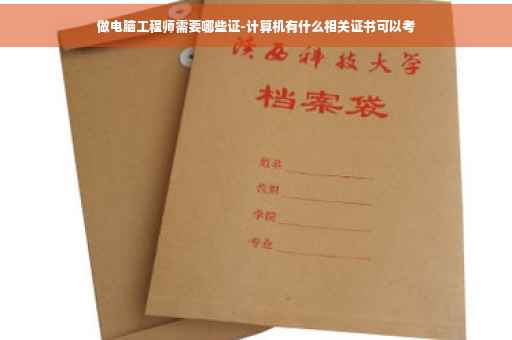 做电脑工程师需要哪些证-计算机有什么相关证书可以考
陕西科技大学
档案袋
学院
专业